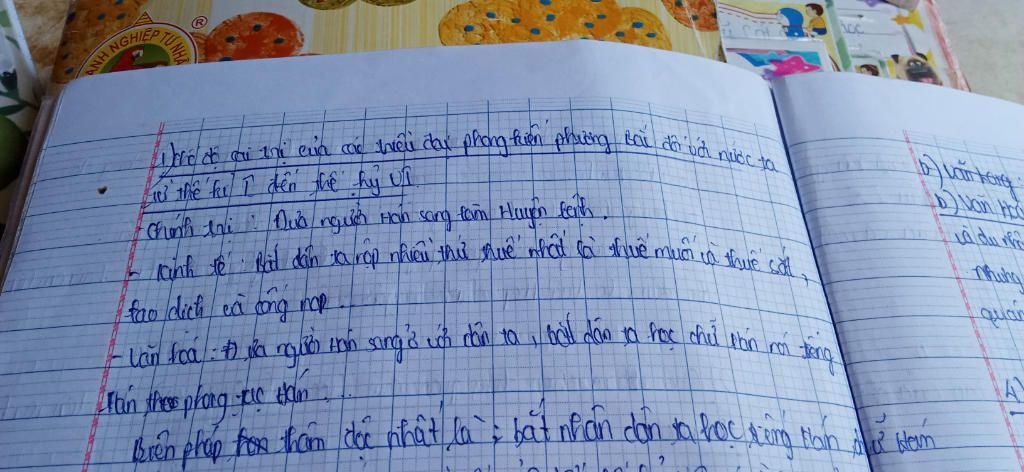 ANH NGHIỆP TƯ NHÂ
®
1) chế độ cai trị của các triều đại phong kiến phương Bắc đối với nước ta
từ thế kỉ I đến thế kỷ VI
Chính trị : Đưa người Hán sang làm Huyện lệnh.
- Kinh tế : Bắt dân ta nộp nhiều thứ thuế nhất là thuế muối và thuế sắt,
lao dịch và cống nạp.
- Văn hoá : Đưa người Hán sang ở với dân ta, bắt dân ta học chữ Hán nói tiếng
Hán theo phong tục Hán...
Biện pháp thâm độc nhất là : bắt nhân dân ta học tiếng Hán chữ Hán
a)
b) Văn Hoá
và du nhậ
nhưng
quán
4)